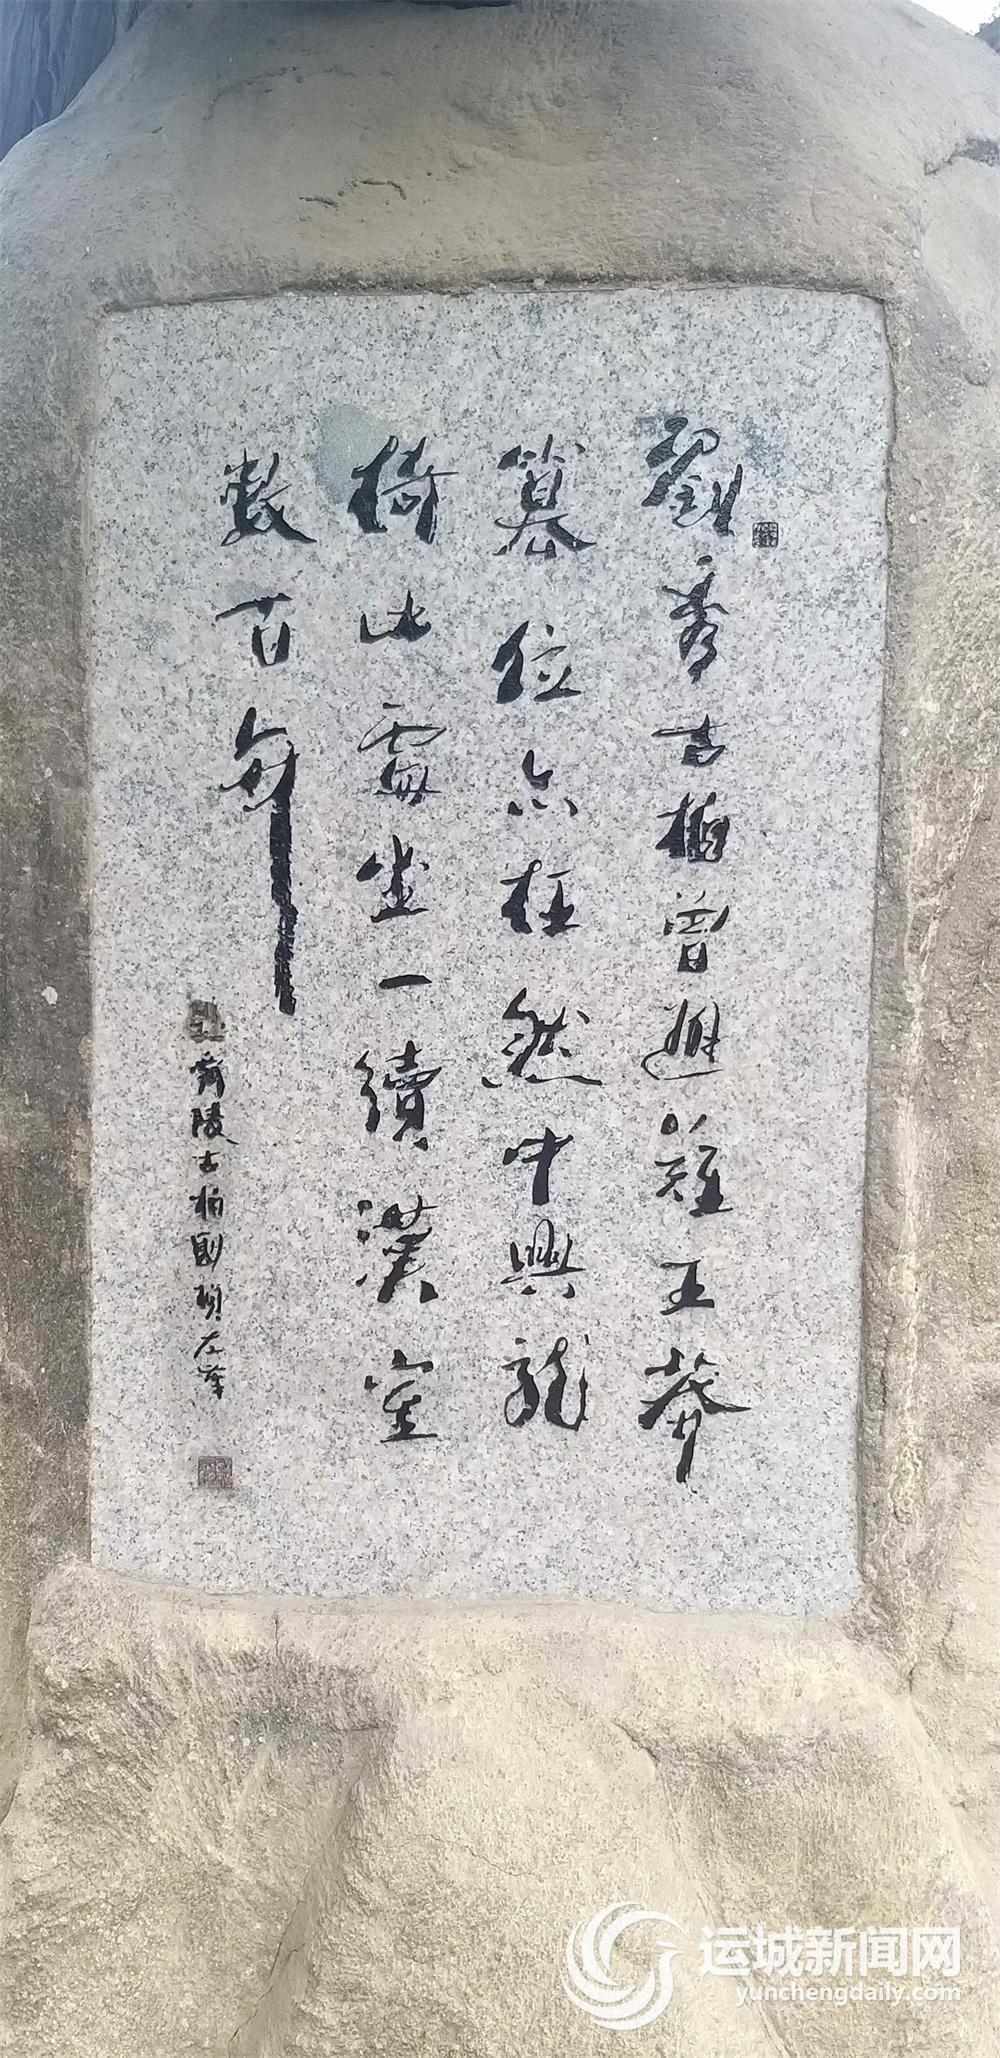 劉秀古柏曾避難王莽
篡位亦枉然中興龍
椅此處坐一續漢室
數百年
舜陵古柏 左筆
运城新闻网
yunchengdaily.com